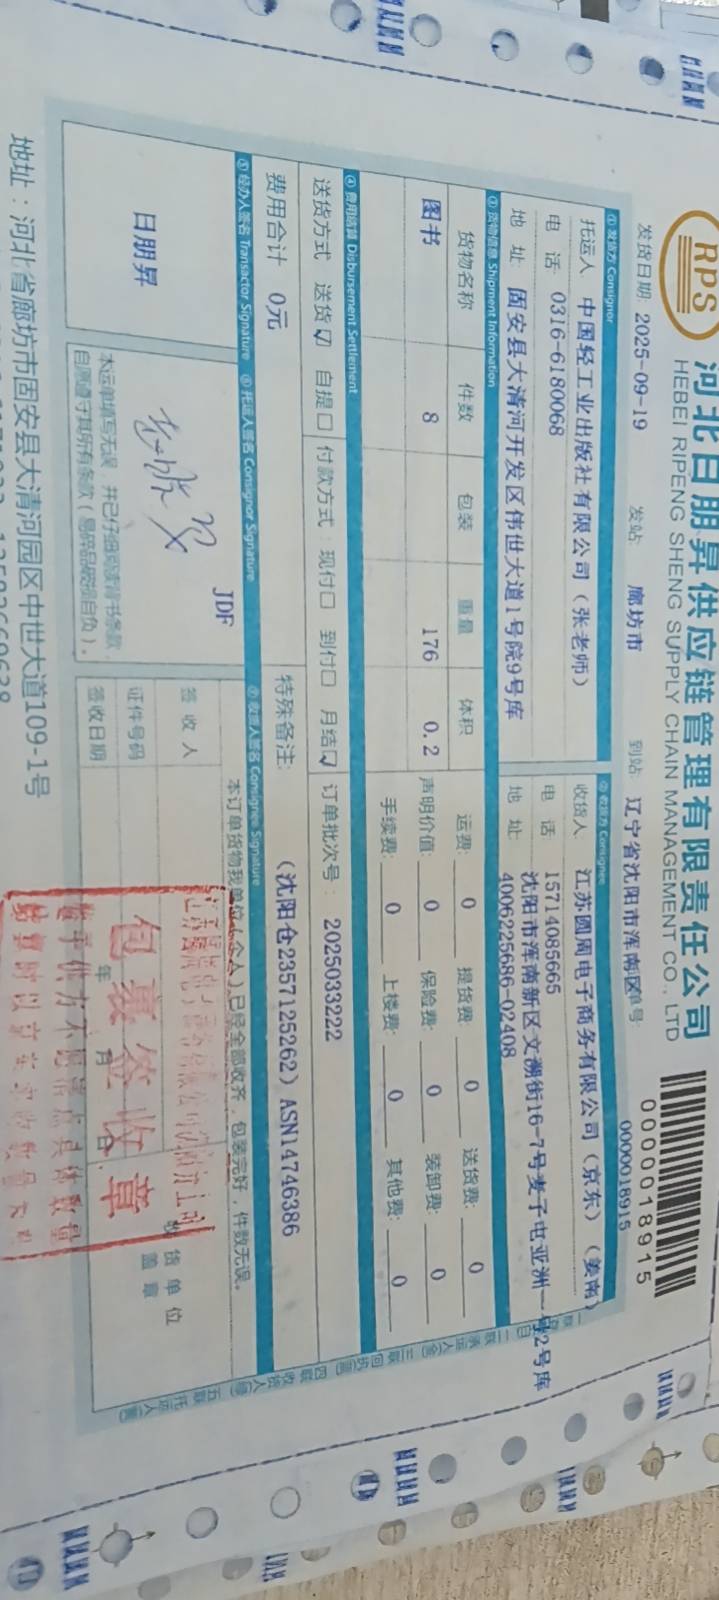 RPS
河北日朋昇供应链管理有限责任公司
HEBEI RIPENG SHENG SUPPLY CHAIN MANAGEMENT CO., LTD
0000018915
发货日期: 2025-09-19 发站: 廊坊市 到站: 辽宁省沈阳市浑南区 单号: 0000018915
① 发货方 Consignor ② 收货方 Consignee
托运人: 中国轻工业出版社有限公司（张老师） 收货人: 江苏圆周电子商务有限公司（京东）（姜南）
电 话: 0316-6180068 电 话: 15714085665
地 址: 固安县大清河开发区伟世大道1号院9号库 地 址: 沈阳市浑南新区文溯街16-7号麦子屯亚洲一号2号库
4006225686-02408
③ 货物信息 Shipment Information
货物名称 件数 包装 重量 体积 运费: 0 提货费: 0 送货费: 0
图书 8 176 0.2 声明价值: 0 保险费: 0 装卸费: 0
手续费: 0 上楼费: 0 其他费: 0
④ 费用结算 Disbursement Settlement
送货方式 送货☑ 自提□ 付款方式: 现付□ 到付□ 月结☑ 订单批次号: 2025033222
费用合计 0元 特殊备注: （沈阳仓2357125262）ASN14746386
⑤ 经办人签名 Transactor Signature ⑥ 托运人签名 Consignor Signature ⑦ 收货人签名 Consignee Signature
JDF
本订单货物我单位(个人)已经全部收齐，包装完好，件数无误。
日朋昇
签 收 人
证件号码
签收日期 年 月 日
收货单位
盖章
本运单填写无误，并已仔细阅读背书条款，
自愿遵守其所有条款(易碎品破损自负)。
包裹签收章
地址：河北省廊坊市固安县大清河园区中世大道109-1号